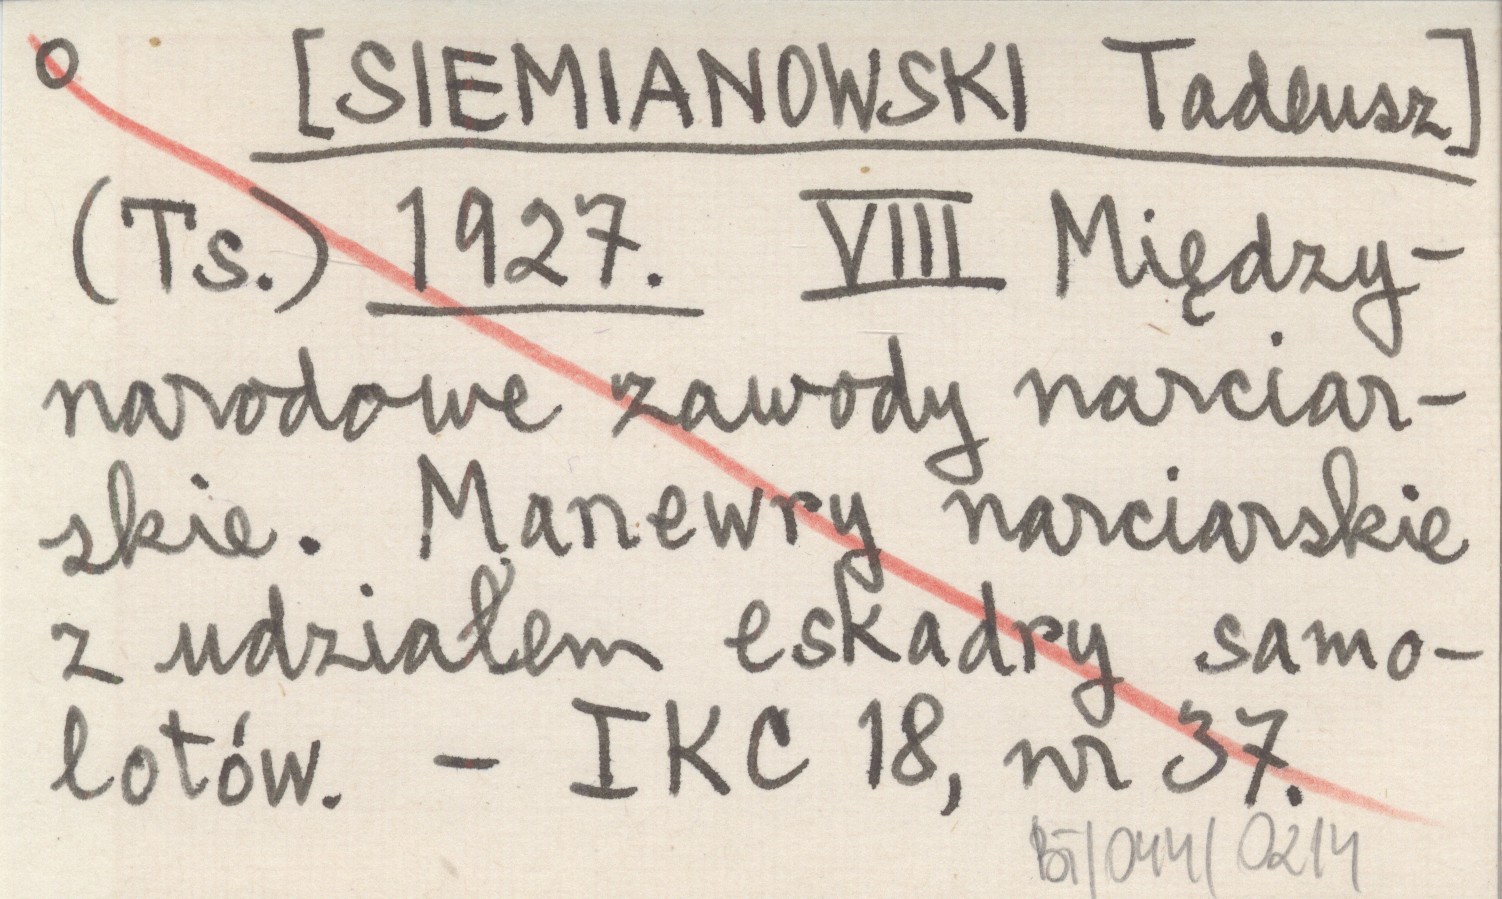 o [SIEMIANOWSKI Tadeusz]
(Ts.) 1927. VIII Między-
narodowe zawody narciar-
skie. Manewry narciarskie
z udziałem eskadry samo-
lotów. - IKC 18, nr 37.
BT/044/0214